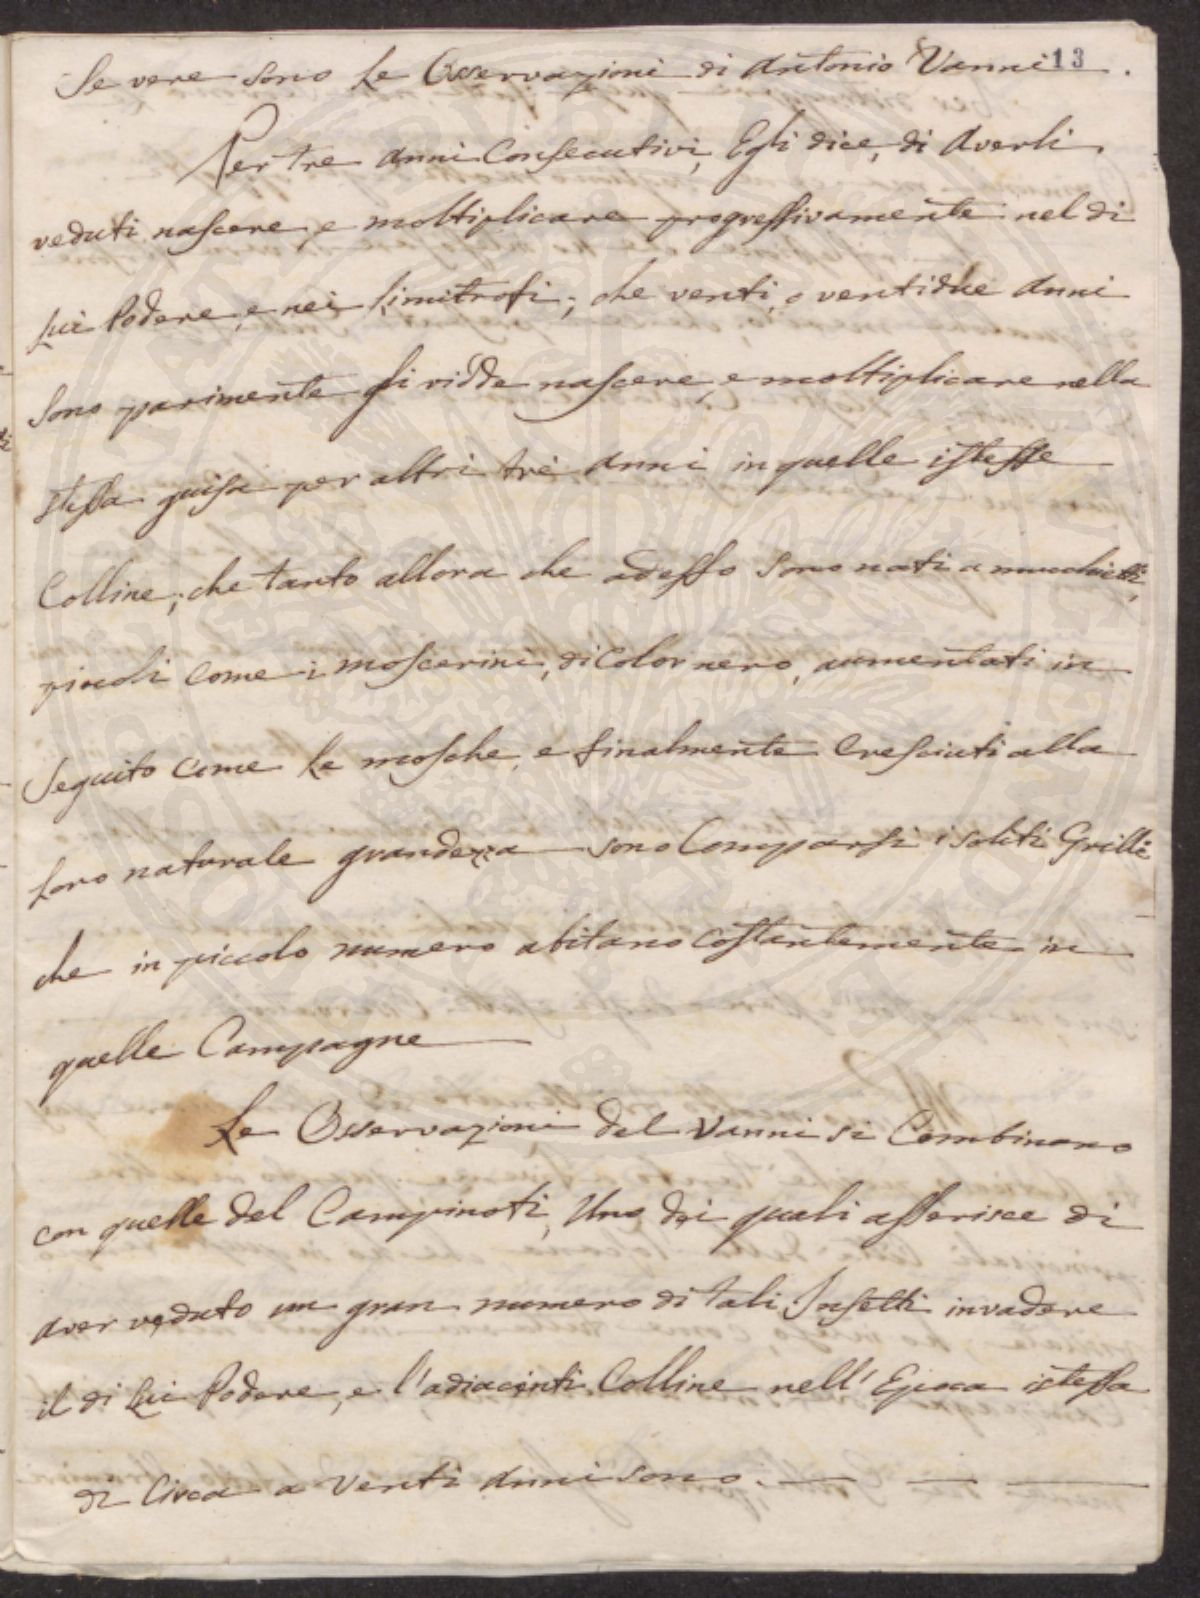 Se vere sono le Osservazioni di Antonio Vanni 13.
Per tre anni Consecutivi, Egli dice, di Averli
veduti nascere, e moltiplicare progressivamente nel di
lui Podere, e nei limitrofi; che venti, o ventidue Anni
sono parimente gli vidde nascere, e moltiplicare nella
stessa guisa per altri trè Anni in quelle istesse
Colline; che tanto allora che adesso sono nati a mucchietti,
piccoli come i moscerini, di color nero, aumentati in
seguito come le mosche, e finalmente Cresciuti alla
loro naturale grandezza sono Comparsi i soliti Grilli
che in piccolo numero abitano costantemente in
quelle Campagne
Le Osservazioni del Vanni si Combinano
con quelle del Campinoti, Uno dei quali asserisce di
aver veduto un gran numero di tali Insetti invadere
il di lui Podere, e l'adiacenti Colline nell' Epoca istessa
di Circa a Venti Anni sono.